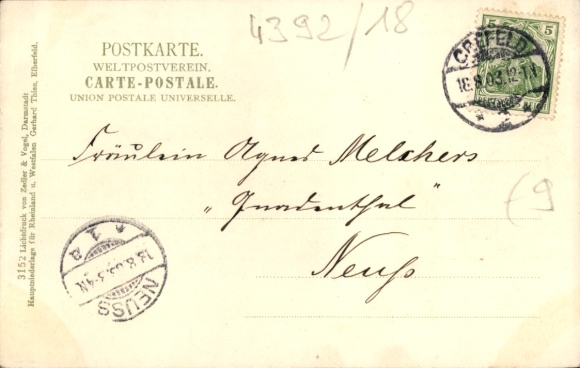 4392/18
5 5
CREFELD
18.8.03.12-1N
* 1 *
POSTKARTE.
WELTPOSTVEREIN.
CARTE-POSTALE.
UNION POSTALE UNIVERSELLE.
Fräulein Agnes Melchers
„Gnadenthal"
Neuß
(9
NEUSS
18.8.03.3-4N.
* 1 a
3152 Lichtdruck von Zedler & Vogel, Darmstadt
Hauptniederlage für Rheinland u. Westfalen Gerhard Thien, Elberfeld.